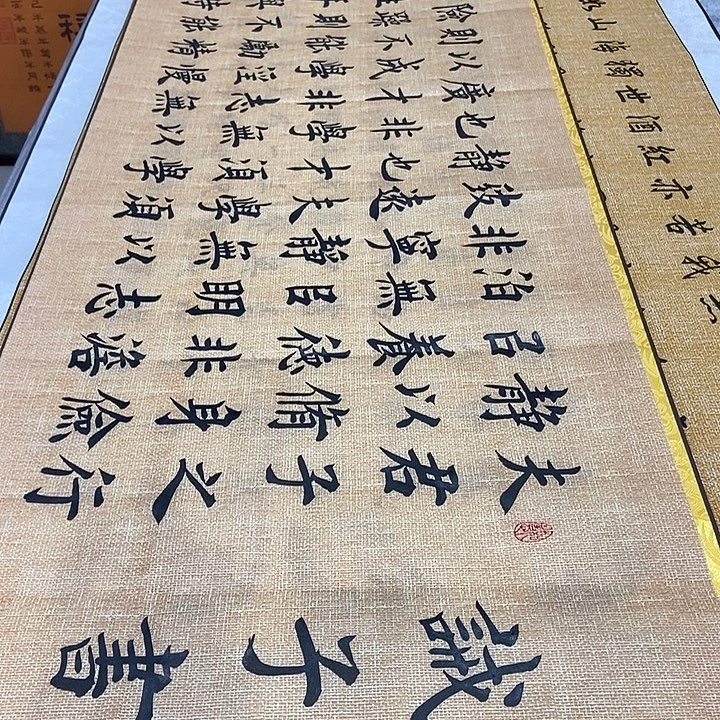 誡子書
夫君子之行
靜以脩身儉
㠯養德非澹
泊無㠯明志
非寧靜無以
致遠夫學須
靜也才須學
也非學無以
廣才非志無
以成學淫慢
則不能勵精
險躁則不
我若亦紅酒世獨
山